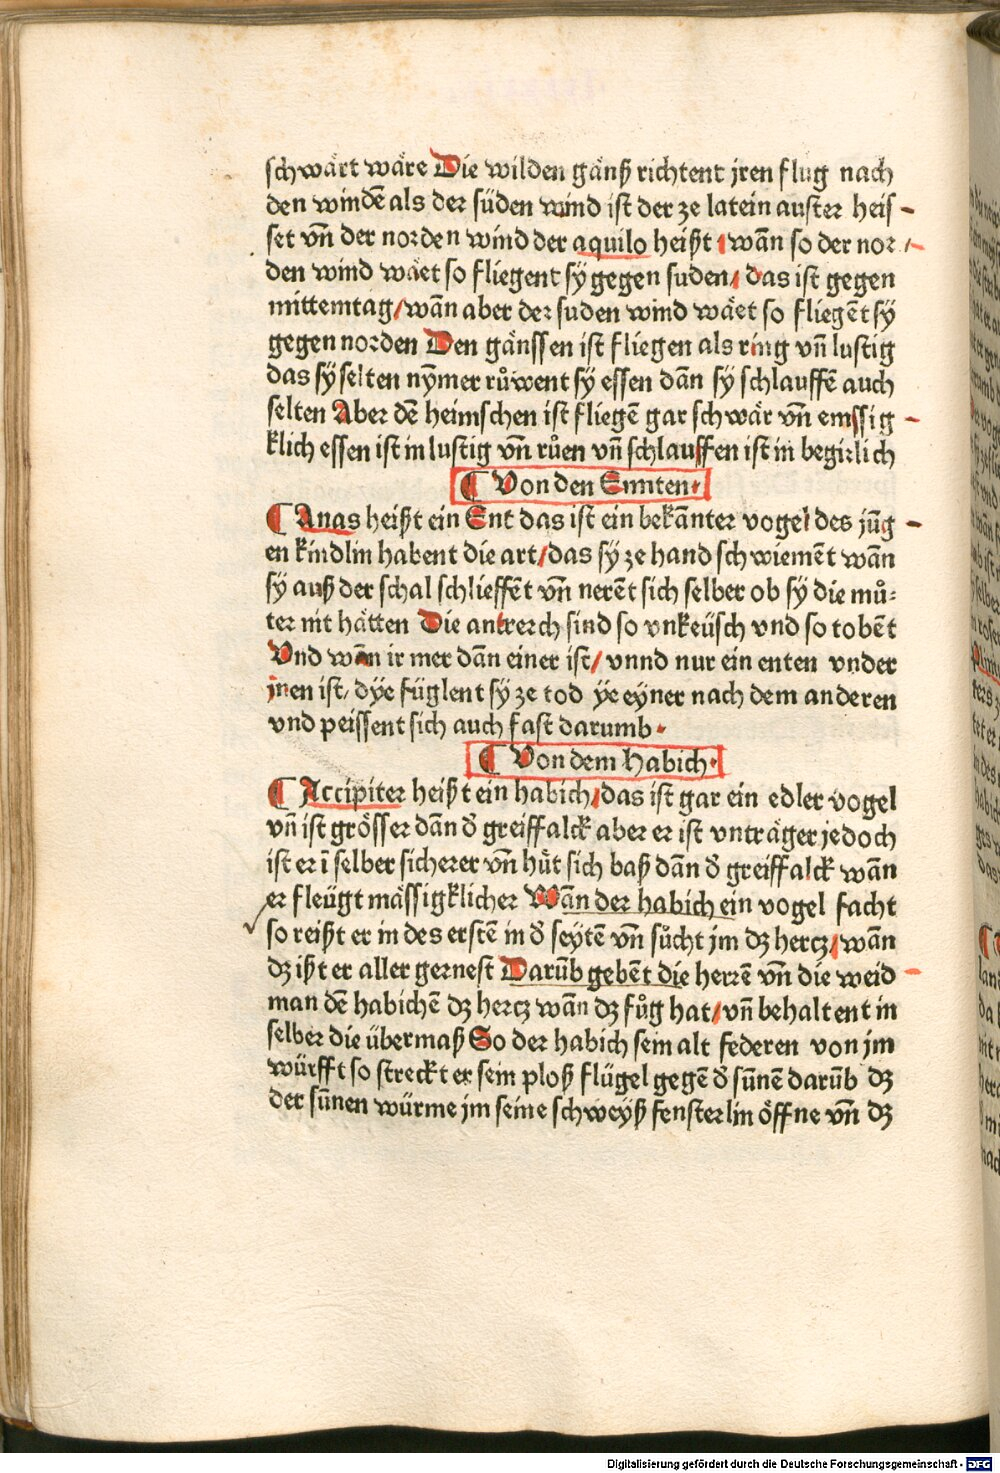 schwärt wäre Die wilden gänß richtent jren flug nach
den windē als der süden wind ist der ze latein auster heis
set vn̄ der norden wind der aquilo heißt / wān so der nor
den wind wäet so fliegent sÿ gegen suden / das ist gegen
mittemtag / wān aber der suden wind wäet so fliegēt sÿ
gegen norden Den gänssen ist fliegen als ring vn̄ lustig
das sÿ selten nÿmer růwent sÿ essen dān sÿ schlauffē auch
selten Aber dē heimschen ist fliegē gar schwär vn̄ emssig
klich essen ist in lustig vn̄ růen vn̄ schlauffen ist in begirlich
¶ Von den Ennten.
¶ Anas heißt ein Ent das ist ein bekānter vogel des jūg
en kindlin habent die art / das sÿ ze hand schwiemēt wān
sÿ auß der schal schlieffēt vn̄ nerēt sich selber ob sÿ die mů⸗
ter nit hätten Die antrerch sind so vnkeüsch vnd so tobēt
Vnd wān ir mer dān einer ist / vnnd nur ein enten vnder
jnen ist / dÿe füglent sÿ ze tod ÿe eÿner nach dem anderen
vnd peissent sich auch fast darumb.
¶ Von dem Habich.
¶ Accipiter heißt ein habich / das ist gar ein edler vogel
vn̄ ist grösser dān d̄ greiffalck aber er ist vnträger jedoch
ist er ī selber sicherer vn̄ hüt sich baß dān d̄ greiffalck wān
er fleügt mässigklicher Wān der habich ein vogel facht
so reißt er in des erstē in d̄ seytē vn̄ sůcht jm dz hercz / wān
dz ißt er aller gernest Darūb gebēt die herrē vn̄ die weid
man dē habichē dz hercz wān dz fůg hat / vn̄ behaltent in
selber die übermaß So der habich sein alt federen von jm
würfft so streckt er sein ploß flügel gegē d̄ sūnē darūb dz
der sūnen würme jm seine schweÿß fensterlin öffne vn̄ dz
Digitalisierung gefördert durch die Deutsche Forschungsgemeinschaft - DFG